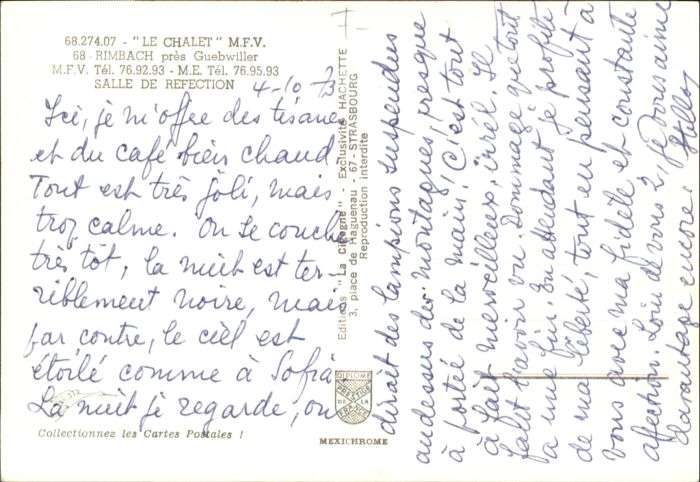 68.274.07 - "LE CHALET" M.F.V.
68 - RIMBACH près Guebwiller
M.F.V. Tél. 76.92.93 - M.E. Tél. 76.95.93
SALLE DE REFECTION
4-10 73
Ici, je m'offre des tisanes
et du café bien chaud.
Tout est très joli, mais
trop calme. On se couche
très tôt, la nuit est ter-
riblement noire, mais
par contre, le ciel est
étoilé comme à Sofia.
La nuit je regarde, on
Collectionnez les Cartes Postales !
Editions "La Cigogne" - Exclusivité HACHETTE
3, place de Haguenau - 67 - STRASBOURG
Reproduction interdite
DIPLOME
PRESTIGE
DE LA
FRANCE
MEXICHROME
dirait des lampions suspendus
au dessus des montagnes, presque
à portée de la main. C'est tout
à fait merveilleux, irréel. Il
fallt l'avoir vu. Dommage que tout
a une fin. En attendant je profite
de ma liberté, tout en pensant à
vous avec ma fidèle et constante
affection. Loin de vous 2, je vous aime
davantage encore.